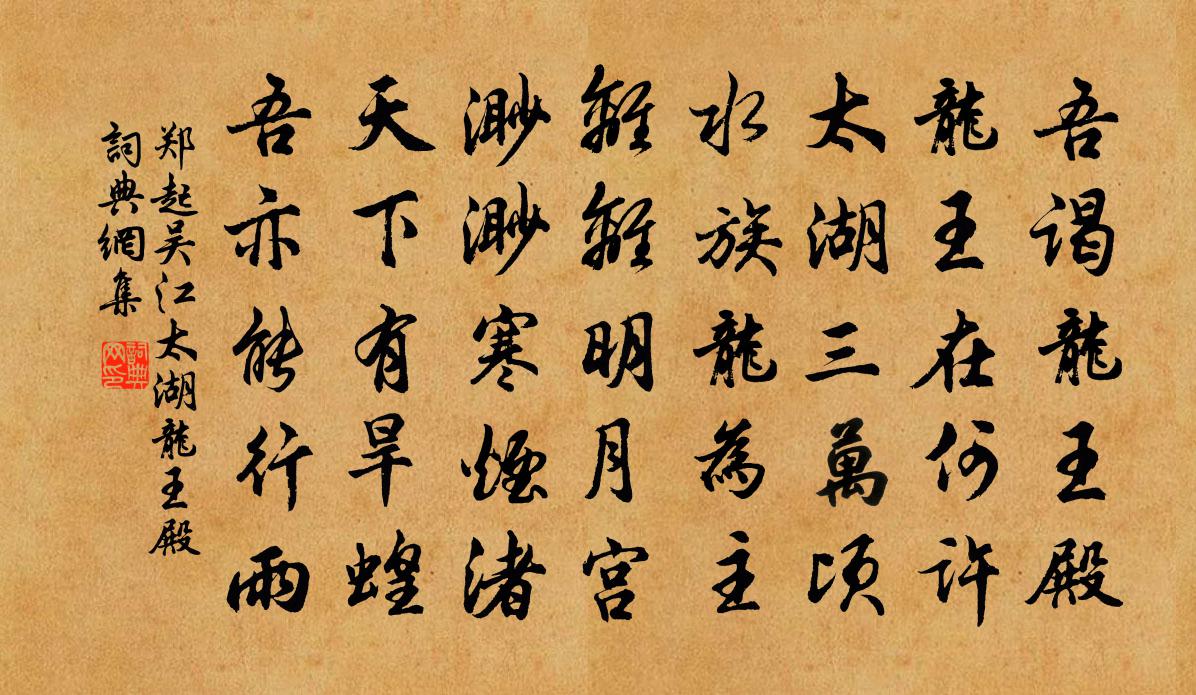 吾谒龍王殿
龍王在何许
太湖三萬頃
水族龍為主
離離明月宫
渺渺寒煙渚
天下有旱蝗
吾亦能行雨
郑起吴江太湖龍王殿
詞典網集
詞典网印